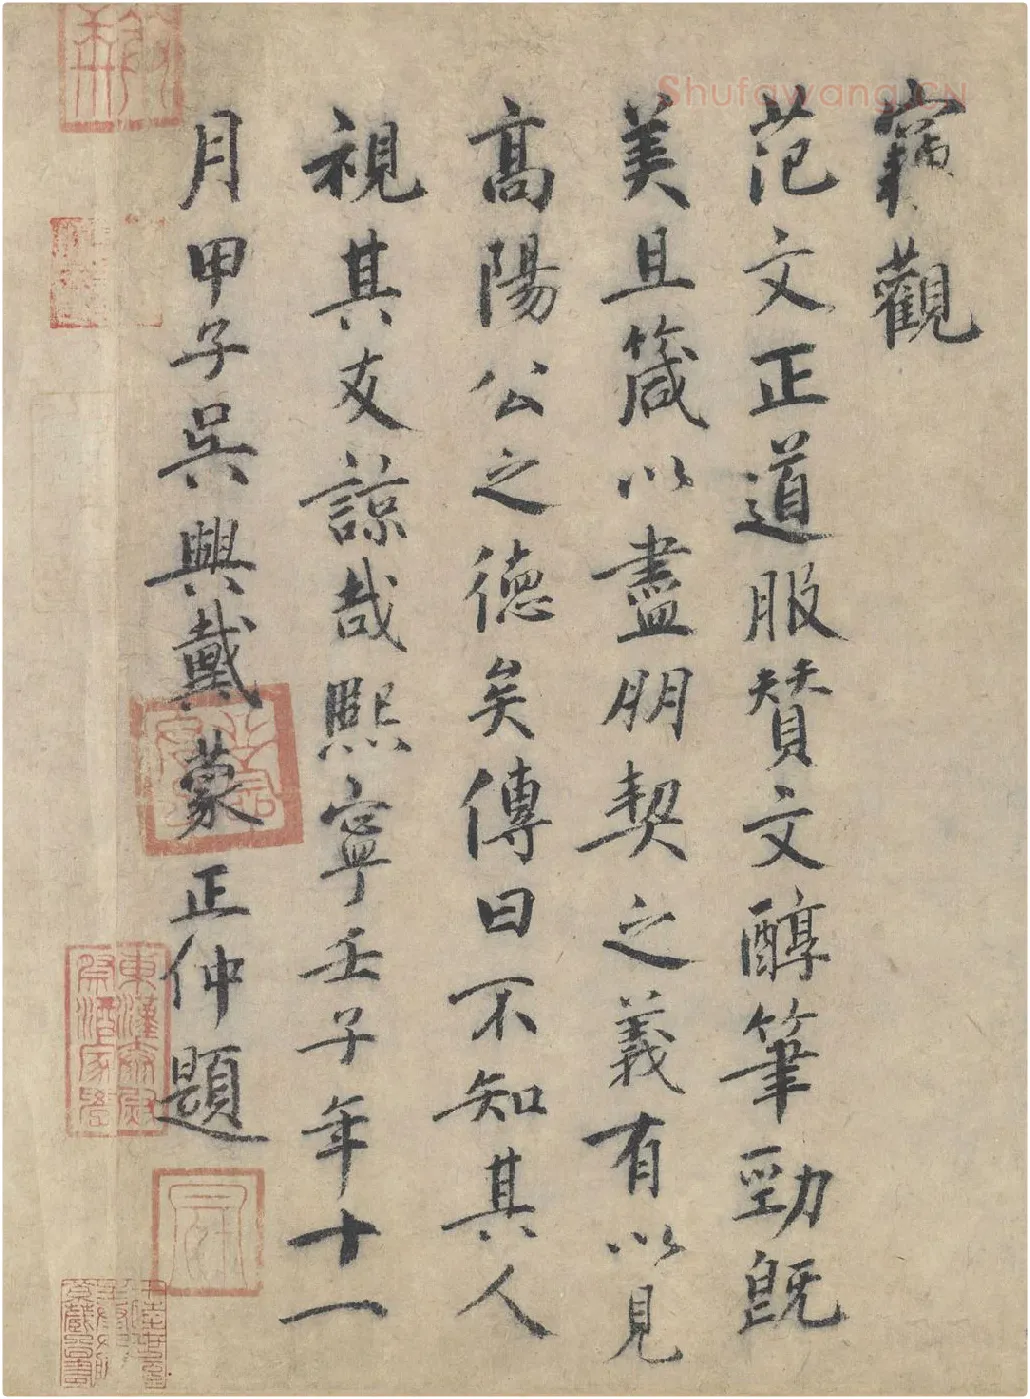 竊觀
范文正道服賛文醇筆勁既
美且箴以盡朋契之義有以見
髙陽公之德矣傳曰不知其人
視其友諒哉熙寧壬子年十一
月甲子吳興戴蒙正仲題
東漢太尉祭酒家學
Shufawang.CN